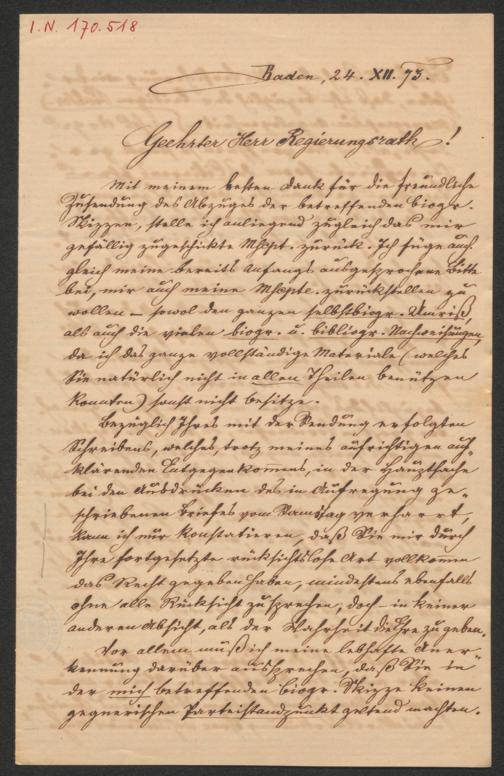 I.N. 170.518
Baden, 24. XII. 73.
Geehrter Herr Regierungsrath!
Mit meinem besten Dank für die freundliche
Zusendung des Abzuges der betreffenden biogr.
Skizzen, stelle ich anliegend zugleich das mir
gefällig zugeschickte Mscpt. zurück. Ich füge auch
gleich meine bereits Anfangs ausgesprochene Bitte
bei, mir auch meine Mscpte. zurückstellen zu
wollen – sowol den ganzen selbstbiogr. Umriß,
als auch die vielen biogr. u. bibliogr. Nachweisungen,
da ich das ganze vollständige Materiale (welches
Sie natürlich nicht in allen Theilen benützen
konnten) sonst nicht besitze.
Bezüglich Ihres mit der Sendung erfolgten
Schreibens, welches, trotz meines aufrichtigen auf-
klärenden Entgegenkommens, in der Hauptsache
bei den Ausdrücken des in Aufregung ge-
schriebenen Briefes vom Samstag verharrt,
kann ich nur konstatieren, daß Sie mir durch
Ihre fortgesetzte rücksichtslose Art vollkommen
das Recht gegeben haben, mindestens ebenfalls
ohne alle Rücksicht zu sprechen, doch – in keiner
anderen Absicht, als der Wahrheit die Ehre zu geben.
Vor allem muß ich meine lebhafte Aner-
kennung darüber aussprechen, daß Sie in
der mich betreffenden biogr. Skizze keinen
gegnerischen Parteistandpunkt geltend machten.